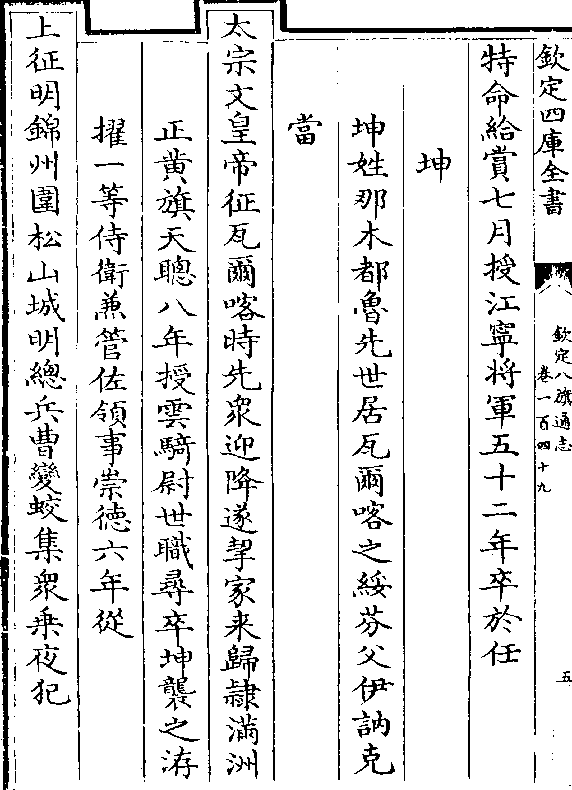 欽定四庫全書
欽定八旗通志
卷一百四十九
五
特命給賞七月授江寧將軍五十二年卒於任
坤
坤姓那木都魯先世居瓦爾喀之綏芬父伊訥克
當
太宗文皇帝征瓦爾喀時先衆迎降遂挈家来歸隷滿洲
正黄旗天聰八年授雲騎尉世職尋卒坤襲之洊
擢一等侍衛兼管佐領事崇徳六年從
上征明錦州圍松山城明總兵曹變蛟集衆乗夜犯